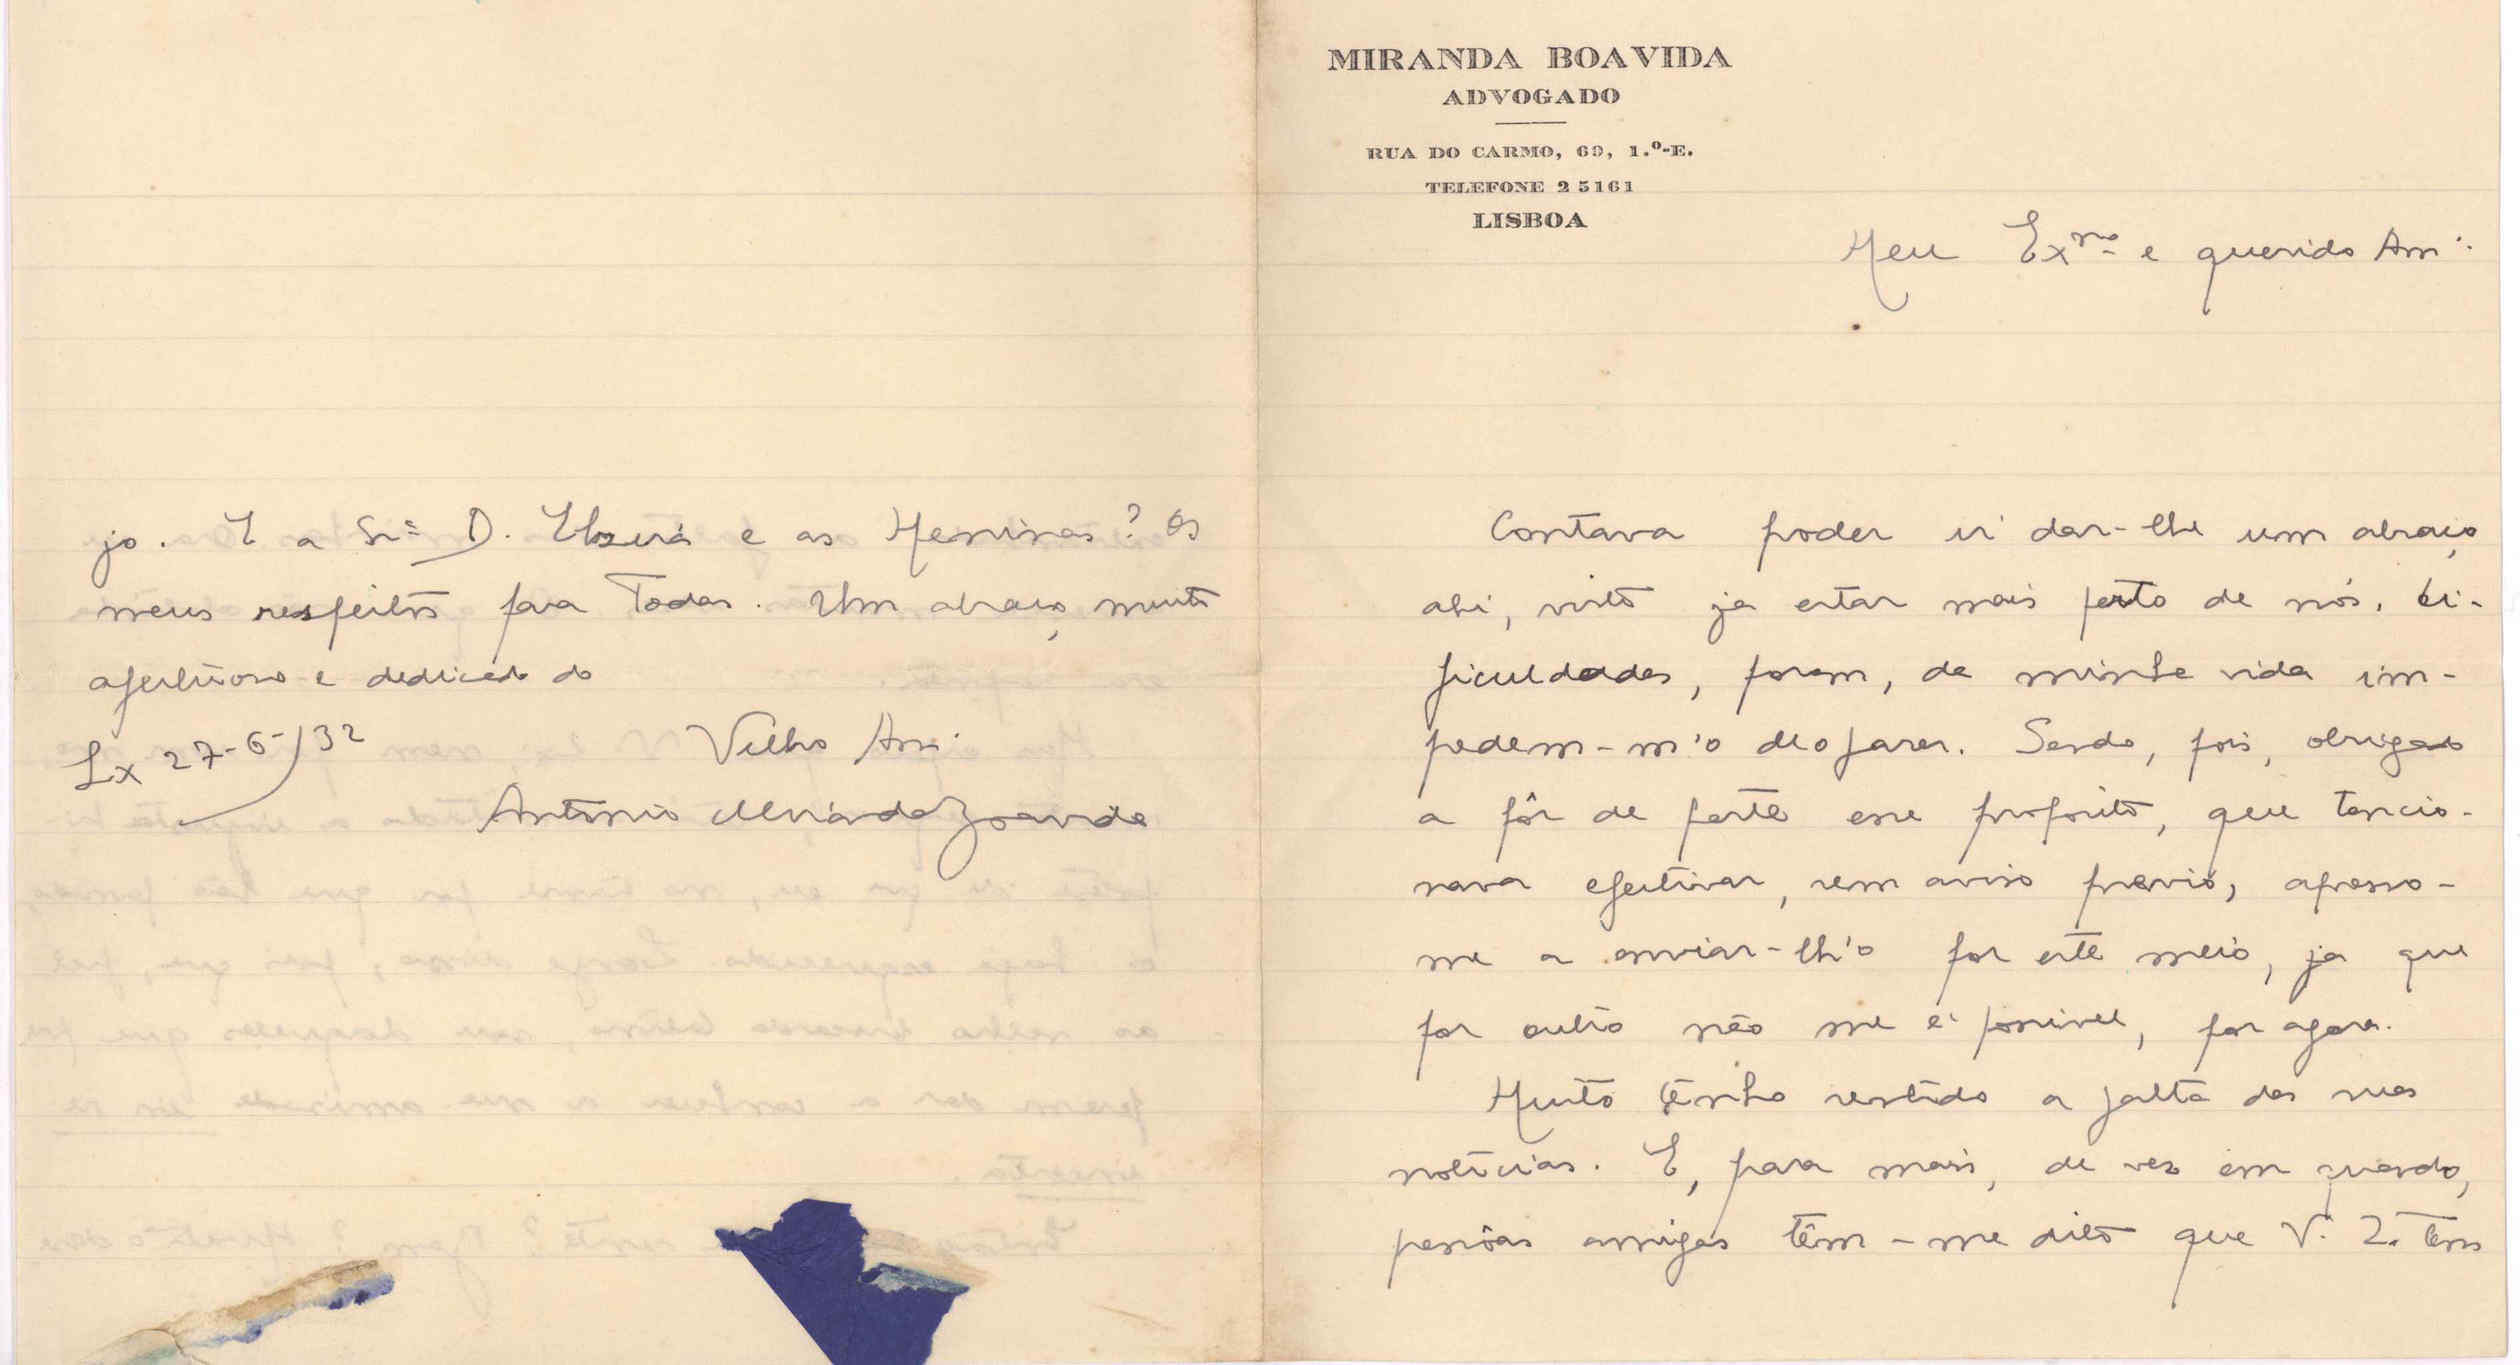 MIRANDA BOAVIDA
ADVOGADO
RUA DO CARMO, 69, 1.º-E.
TELEFONE 25161
LISBOA
Meu Exmo e querido Amº:
Contava poder ir dar-lhe um abraço
ahi, visto ja estar mais perto de nós. Di-
ficuldades, porem, da minha vida im-
pedem-m'o de o fazer. Sendo, pois, obrigado
a pôr de parte esse proposito, que tencio-
nava efectivar, sem aviso previo, apresso-
me a enviar-lh'o por este meio, ja que
por outro não me é possivel, por agora.
Muito tenho sentido a falta das suas
noticias. E, para mais, de vez em quando,
pessôas amigas têm-me dito que V. Ex. tem
jo. E a Srª D. e as Meninas? Os
meus respeitos para Todas. Um abraço muito
afectuoso e dedicado do
Velho Amº
Lx 27-6-932
Antonio Miranda Boavida